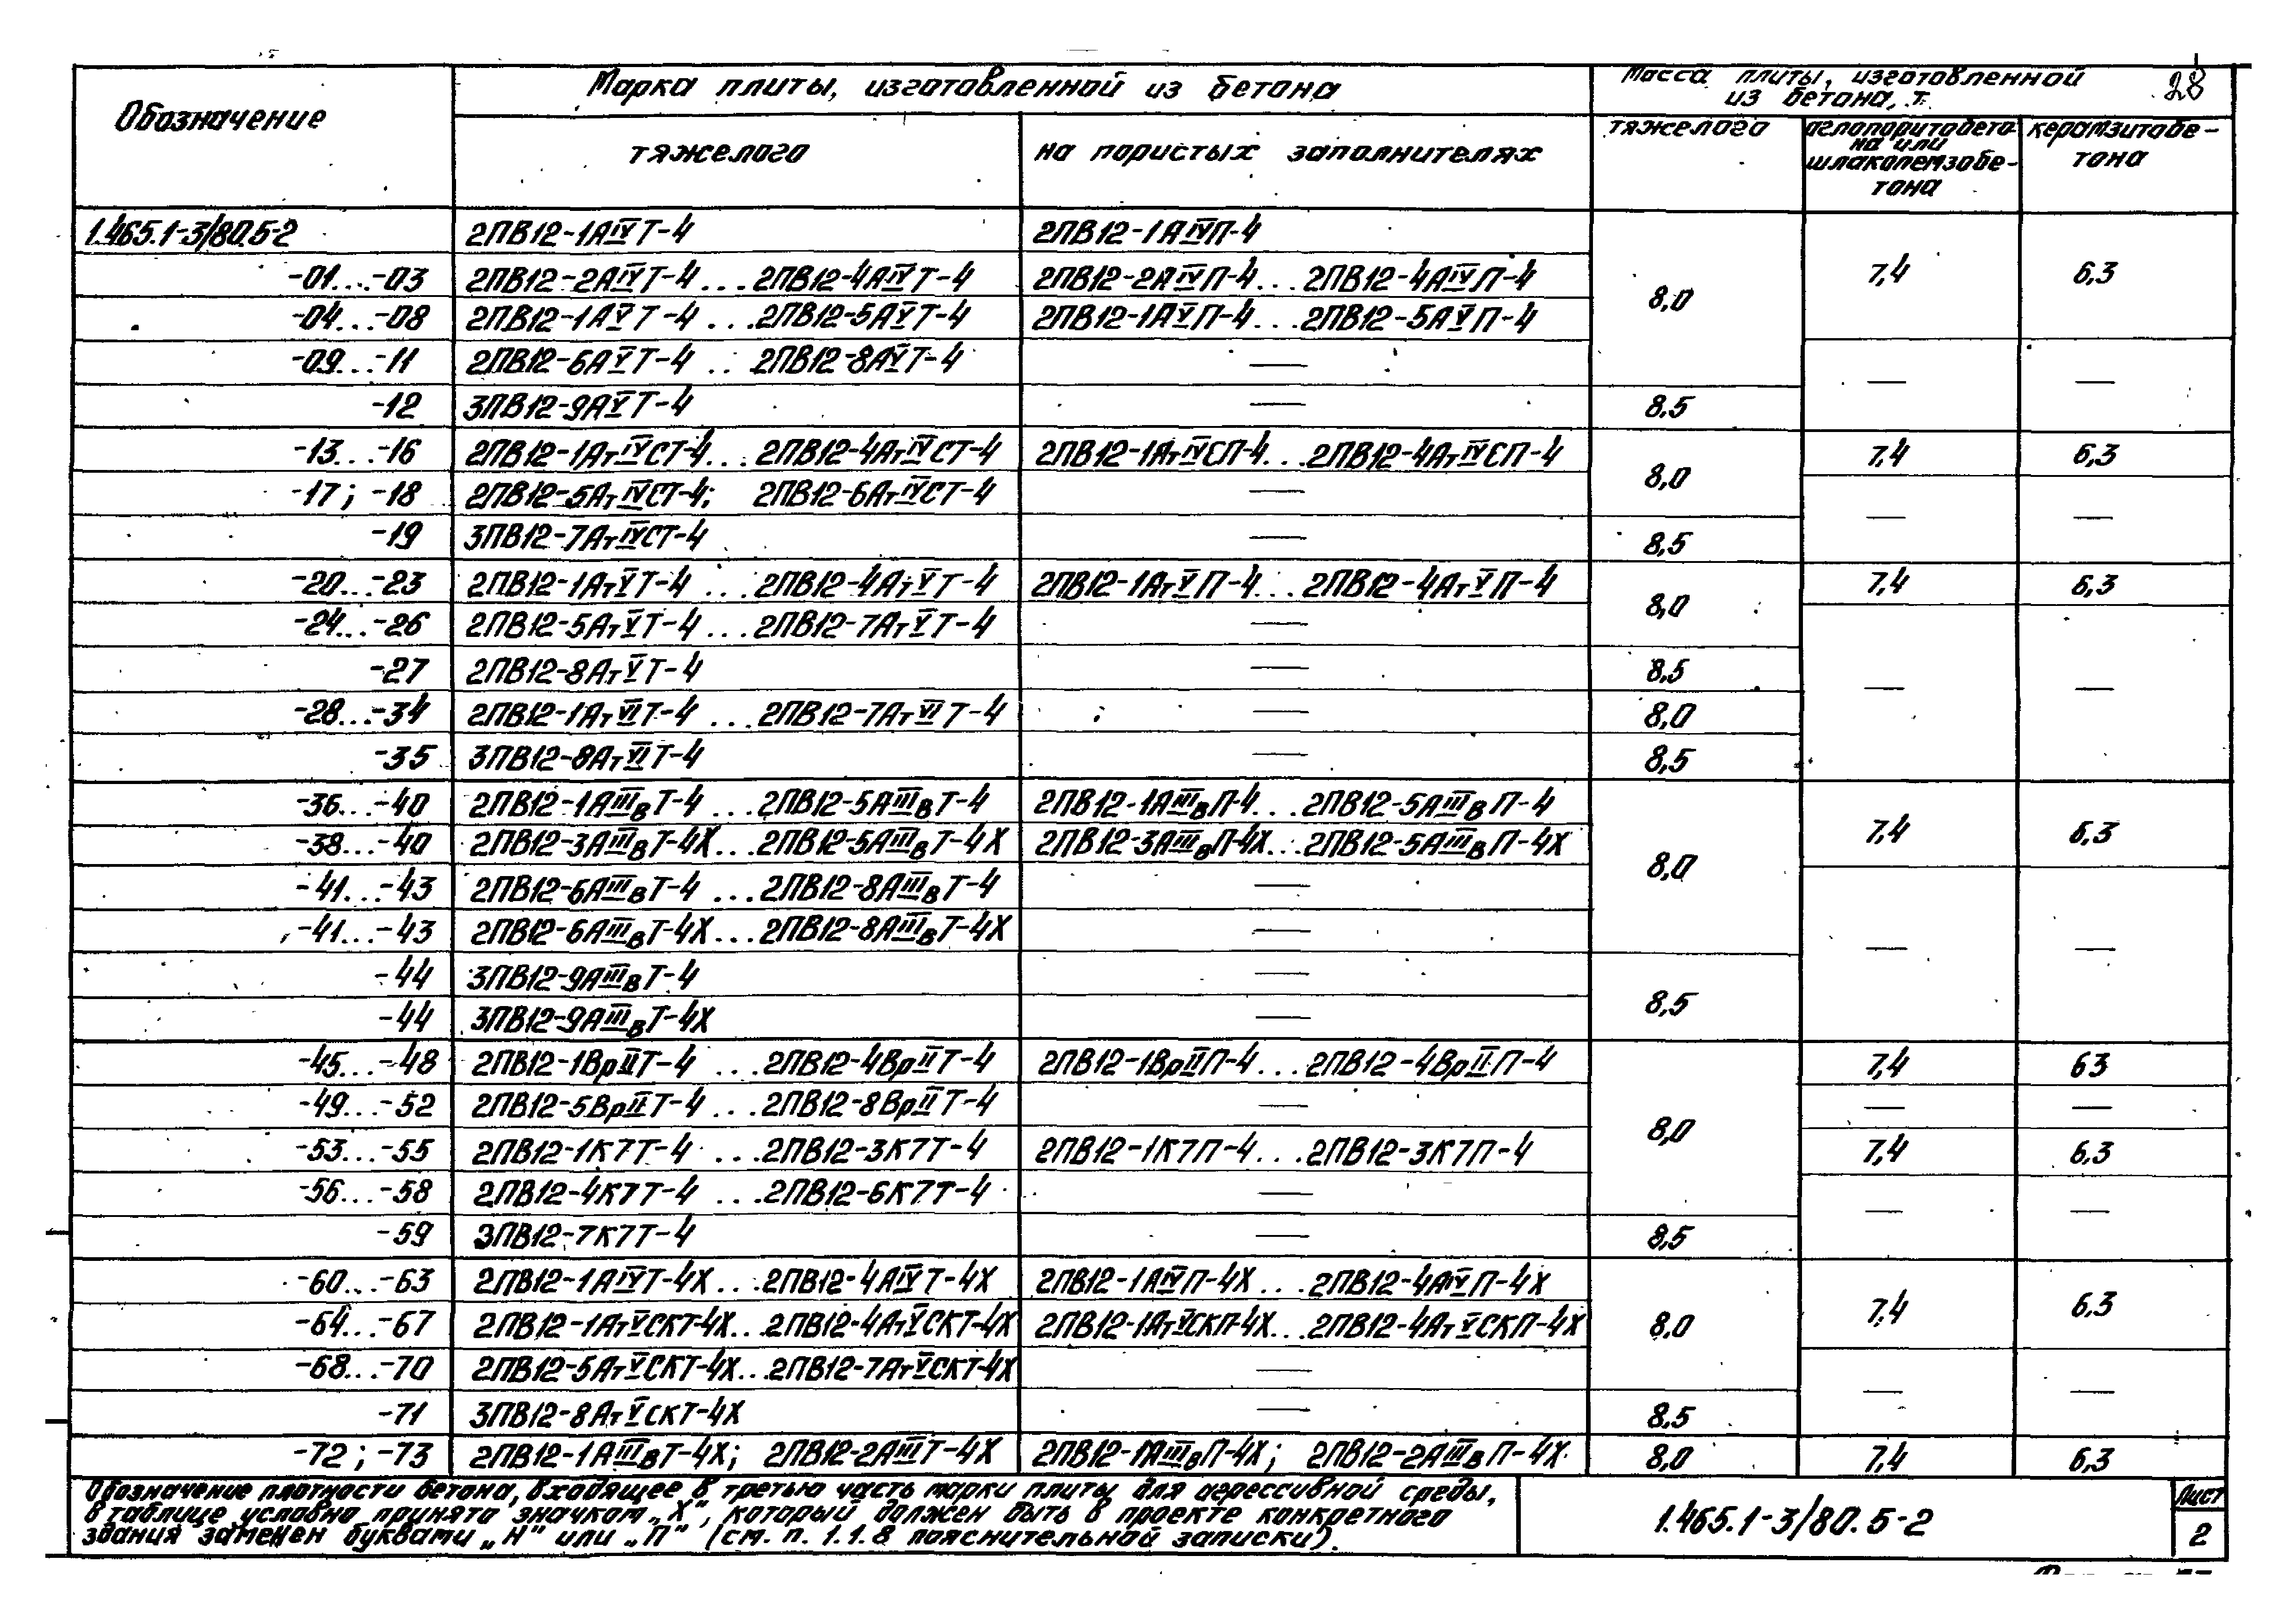 28
Обозначение
Марка плиты, изготовленной из бетона
Масса плиты, изготовленной
из бетона, т.
тяжелого
на пористых заполнителях
тяжелого
аглопоритобето
на или
шлакопемзобе-
тона
керамзитобе-
тона
1.465.1-3/80.5-2 2ПВ12-1АIVТ-4 2ПВ12-1АIVП-4
-01...-03 2ПВ12-2АIVТ-4...2ПВ12-4АIVТ-4 2ПВ12-2АIVП-4...2ПВ12-4АIVП-4 8,0 7,4 6,3
-04...-08 2ПВ12-1АVТ-4...2ПВ12-5АVТ-4 2ПВ12-1АVП-4...2ПВ12-5АVП-4
-09...-11 2ПВ12-6АVТ-4...2ПВ12-8АVТ-4 — — —
-12 3ПВ12-9АVТ-4 — 8,5
-13...-16 2ПВ12-1АтIVСТ-4...2ПВ12-4АтIVСТ-4 2ПВ12-1АтIVСП-4...2ПВ12-4АтIVСП-4 8,0 7,4 6,3
-17; -18 2ПВ12-5АтIVСТ-4; 2ПВ12-6АтIVСТ-4 — — —
-19 3ПВ12-7АтIVСТ-4 — 8,5
-20...-23 2ПВ12-1АтVТ-4...2ПВ12-4АтVТ-4 2ПВ12-1АтVП-4...2ПВ12-4АтVП-4 8,0 7,4 6,3
-24...-26 2ПВ12-5АтVТ-4...2ПВ12-7АтVТ-4 —
-27 2ПВ12-8АтVТ-4 — 8,5 — —
-28...-34 2ПВ12-1АтVIТ-4...2ПВ12-7АтVIТ-4 — 8,0
-35 3ПВ12-8АтVIТ-4 — 8,5
-36...-40 2ПВ12-1АIIIвТ-4...2ПВ12-5АIIIвТ-4 2ПВ12-1АIIIвП-4...2ПВ12-5АIIIвП-4 7,4 6,3
-38...-40 2ПВ12-3АIIIвТ-4Х...2ПВ12-5АIIIвТ-4Х 2ПВ12-3АIIIвП-4Х...2ПВ12-5АIIIвП-4Х 8,0
-41...-43 2ПВ12-6АIIIвТ-4...2ПВ12-8АIIIвТ-4 —
-41...-43 2ПВ12-6АIIIвТ-4Х...2ПВ12-8АIIIвТ-4Х — — —
-44 3ПВ12-9АIIIвТ-4 — 8,5
-44 3ПВ12-9АIIIвТ-4Х —
-45...-48 2ПВ12-1ВрIIТ-4...2ПВ12-4ВрIIТ-4 2ПВ12-1ВрIIП-4...2ПВ12-4ВрIIП-4 7,4 63
-49...-52 2ПВ12-5ВрIIТ-4...2ПВ12-8ВрIIТ-4 — 8,0 — —
-53...-55 2ПВ12-1К7Т-4...2ПВ12-3К7Т-4 2ПВ12-1К7П-4...2ПВ12-3К7П-4 7,4 6,3
-56...-58 2ПВ12-4К7Т-4...2ПВ12-6К7Т-4 — — —
-59 3ПВ12-7К7Т-4 — 8,5
-60...-63 2ПВ12-1АIVТ-4Х...2ПВ12-4АIVТ-4Х 2ПВ12-1АIVП-4Х...2ПВ12-4АIVП-4Х 7,4 6,3
-64...-67 2ПВ12-1АтVСКТ-4Х...2ПВ12-4АтVСКТ-4Х 2ПВ12-1АтVСКП-4Х...2ПВ12-4АтVСКП-4Х 8,0
-68...-70 2ПВ12-5АтVСКТ-4Х...2ПВ12-7АтVСКТ-4Х — — —
-71 3ПВ12-8АтVСКТ-4Х — 8,5
-72; -73 2ПВ12-1АIIIвТ-4Х; 2ПВ12-2АIIIТ-4Х 2ПВ12-1АIIIвП-4Х; 2ПВ12-2АIIIвП-4Х 8,0 7,4 6,3
Обозначение плотности бетона, входящее в третью часть марки плиты для агрессивной среды,
в таблице условно принято значком „Х", который должен быть в проекте конкретного
здания заменен буквами „Н" или „П" (см. п. 1.1.8 пояснительной записки).
1.465.1-3/80.5-2
Лист
2